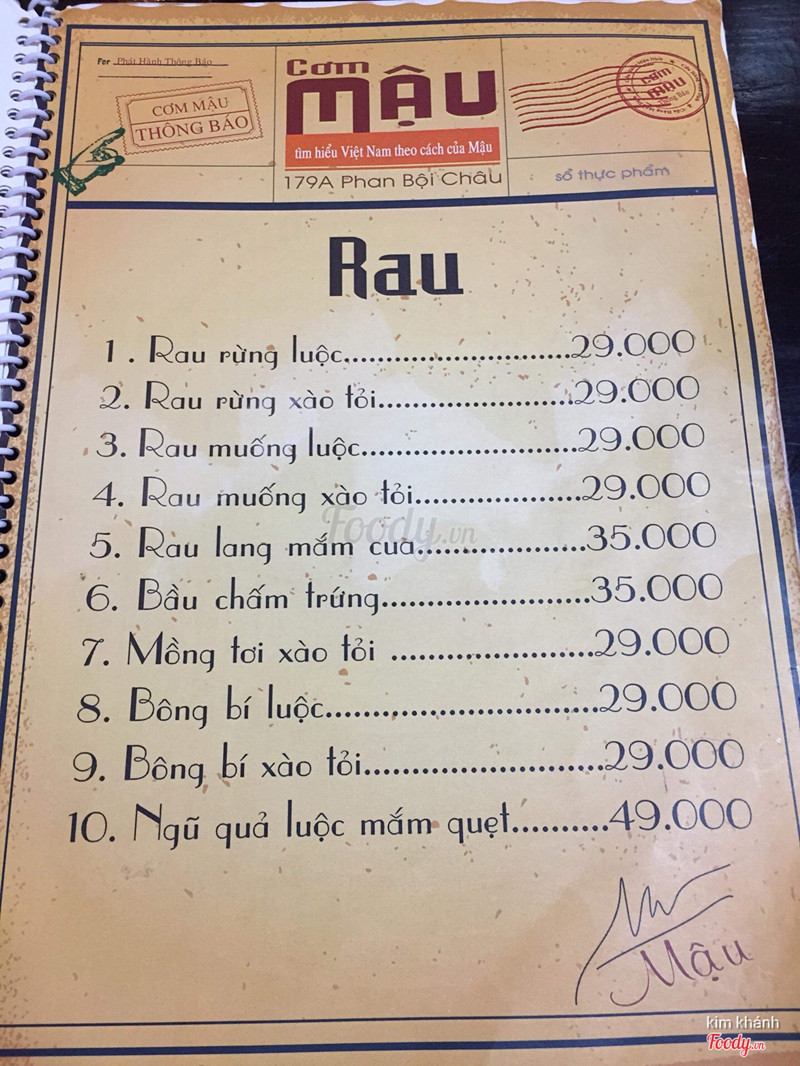 For Phát Hành Thông Báo
CƠM MẬU
THÔNG BÁO
Cơm
MẬU
tìm hiểu Việt Nam theo cách của Mậu
179A Phan Bội Châu
CƠM
MẬU
sổ thực phẩm
Rau
1 . Rau rừng luộc..............................29.000
2. Rau rừng xào tỏi.........................29.000
3. Rau muống luộc............................29.000
4. Rau muống xào tỏi.....................29.000
5. Rau lang mắm cua.....................35.000
6. Bầu chấm trứng..........................35.000
7. Mồng tơi xào tỏi .........................29.000
8. Bông bí luộc..................................29.000
9. Bông bí xào tỏi..............................29.000
10. Ngũ quả luộc mắm quẹt..........49.000
Foody.vn
Mậu
kim khánh
Foody.vn